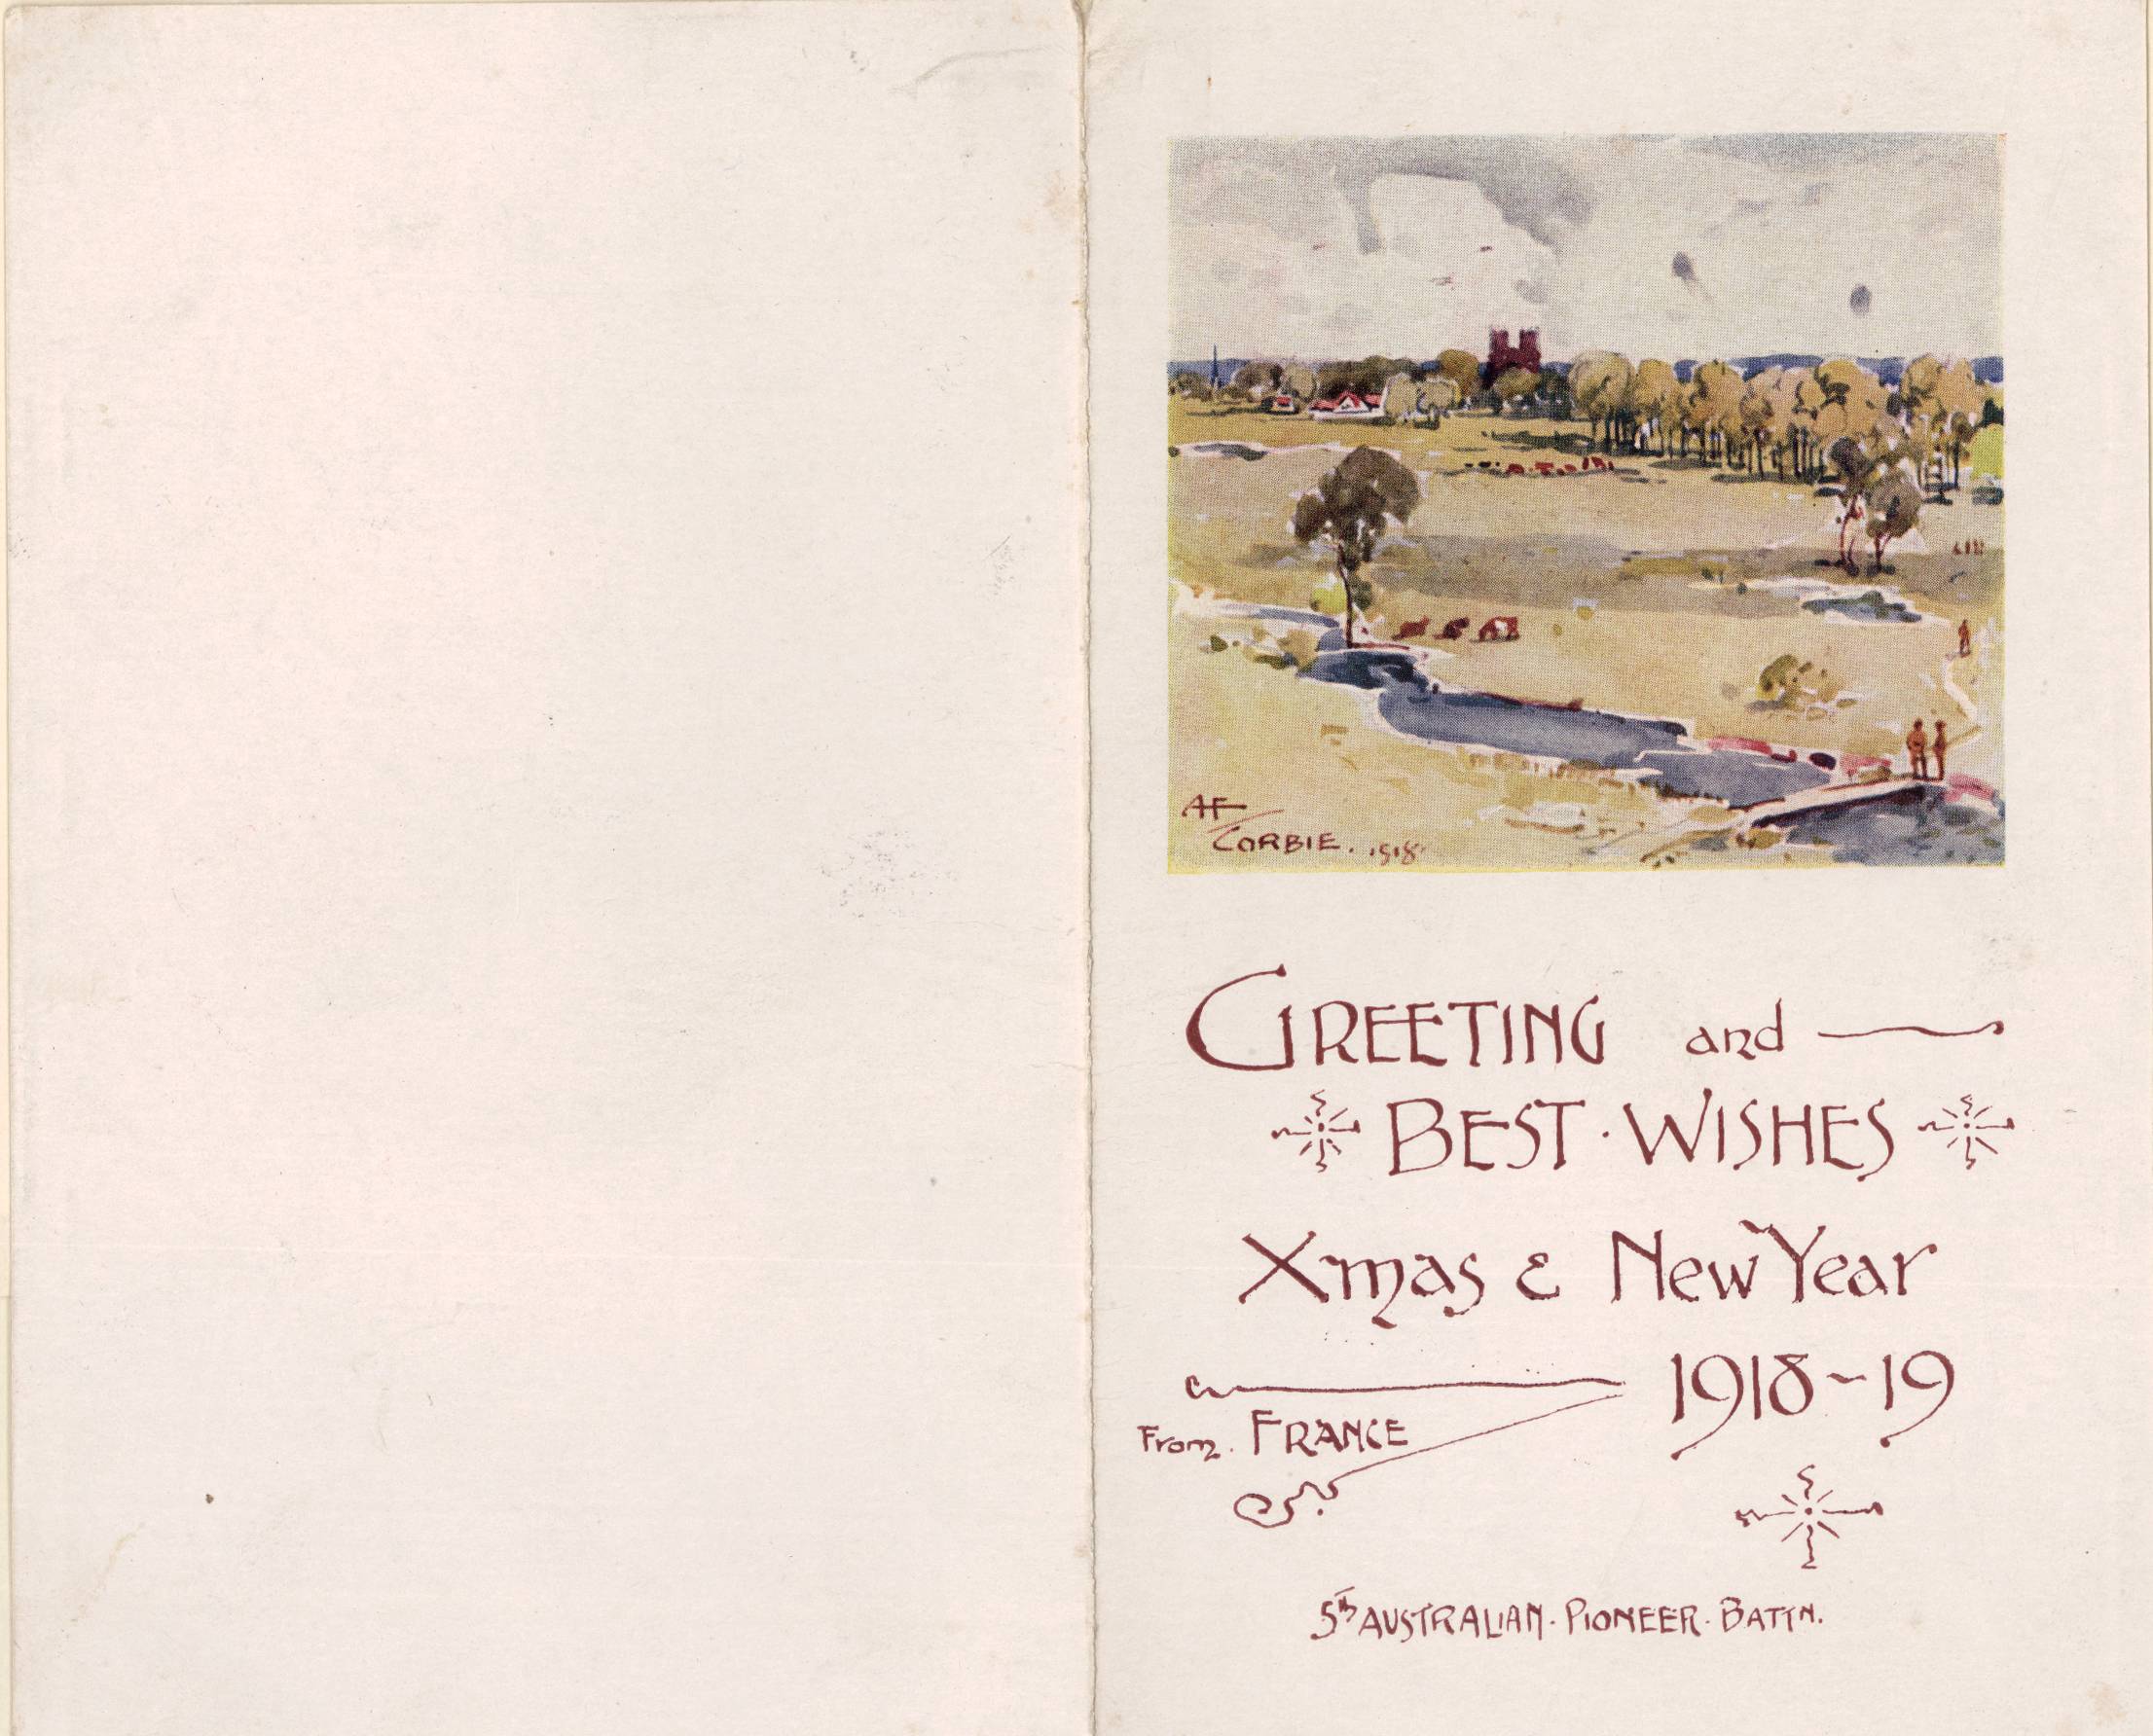 AF
CORBIE. 1918
GREETING and
BEST · WISHES
Xmas & New Year
1918~19
From. FRANCE
5th AUSTRALIAN · PIONEER · BATTN.